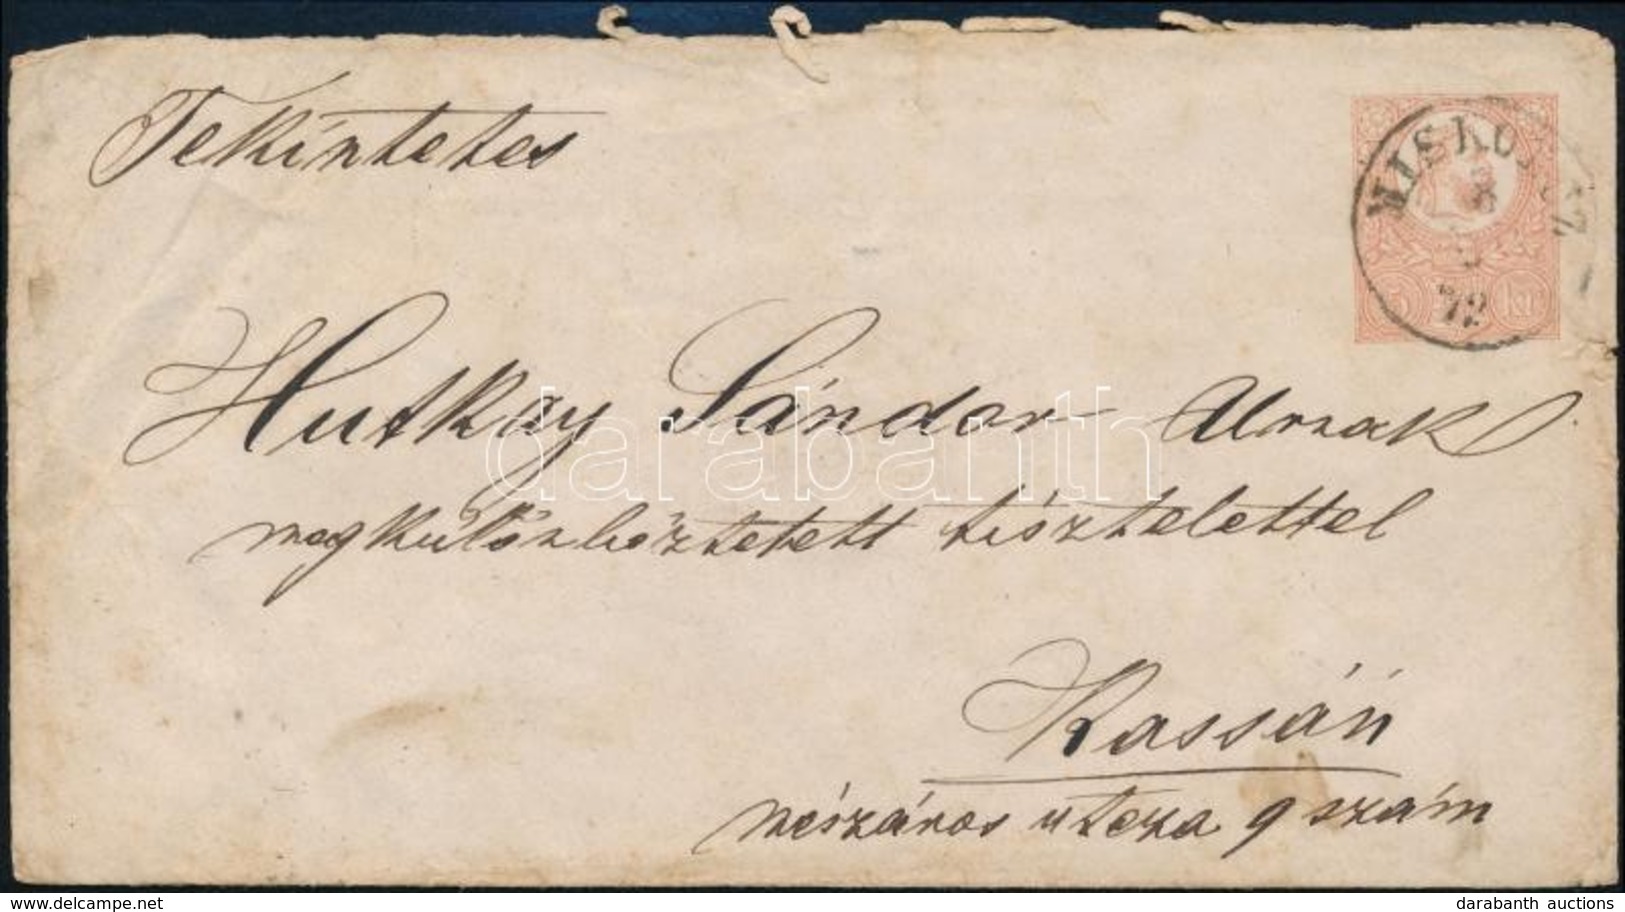 Tekintetes
MISKOLCZ
72
5 kr
Hutkay Sándor Urnak
megkülönböztetett tisztelettel
Kassán
mészáros utcza 9 szám
darabanth
www.delcampe.net
darabanth auctions